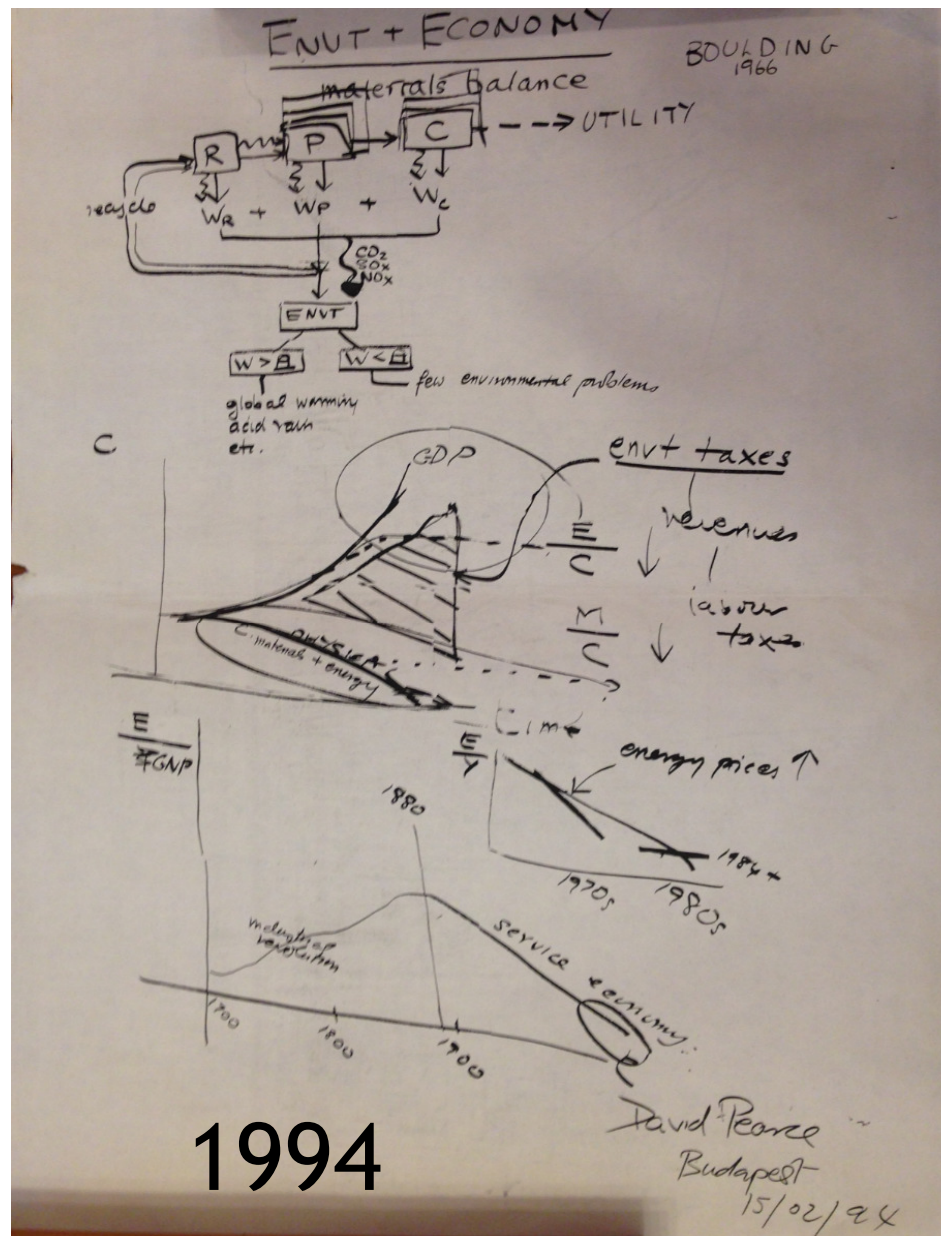 ENVT + ECONOMY
BOULDING
1966
materials balance
R
P
C
UTILITY
recycle
WR + WP + WC
CO2
SOx
NOx
ENVT
W > A
W < A
few environmental problems
global warming
acid rain
etc.
C
GDP
envt taxes
revenues
labour
taxes
E/C ↓
M/C ↓
PHYSICAL
C. materials + energy
time
E/GNP
E/Y
energy prices ↑
1984 +
1970s
1980s
1880
industrial
revolution
service economy
1700
1800
1900
David Pearce
Budapest
15/02/94
1994